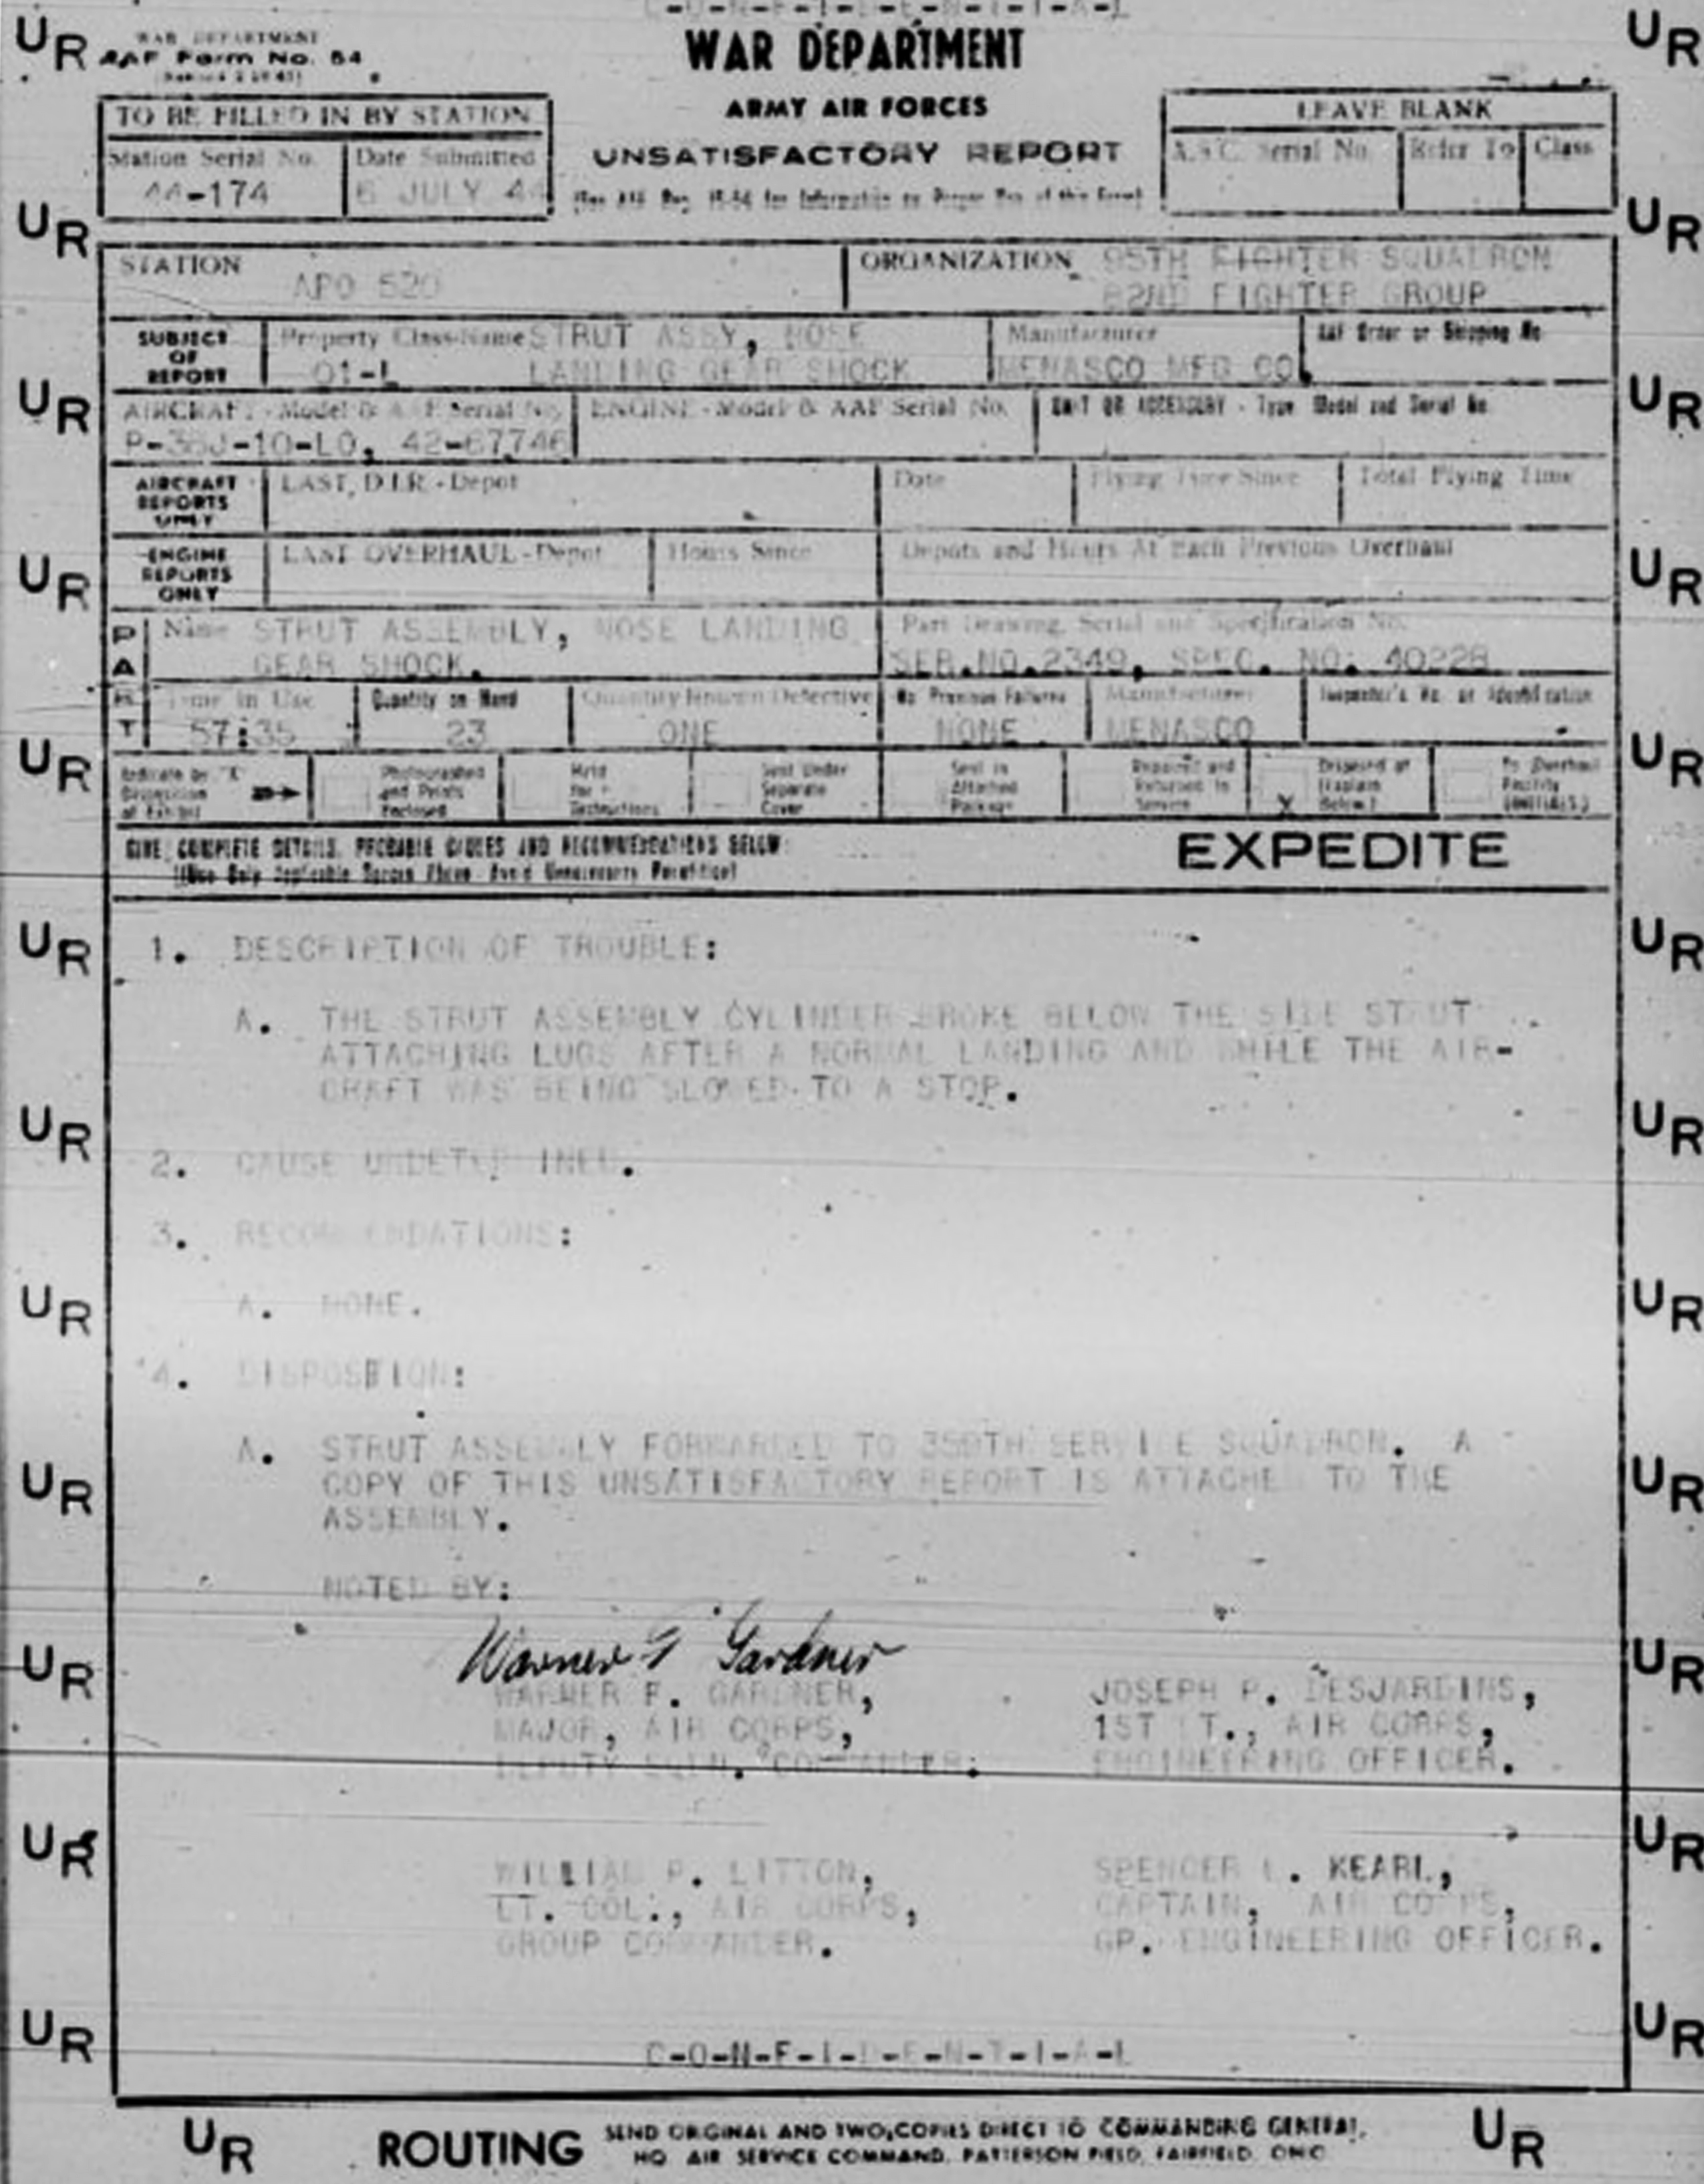 C-O-N-F-I-D-E-N-T-I-A-L
WAR DEPARTMENT
AAF Form No. 54
WAR DEPARTMENT
ARMY AIR FORCES
UNSATISFACTORY REPORT
TO BE FILLED IN BY STATION
Station Serial No. Date Submitted
44-174 6 JULY 44
LEAVE BLANK
A.S.C. Serial No. Refer To Class
STATION APO 520
ORGANIZATION 95TH FIGHTER SQUADRON
82ND FIGHTER GROUP
SUBJECT OF REPORT
Property Class-Name STRUT ASSY, NOSE
01-L LANDING GEAR SHOCK
Manufacturer
MENASCO MFG CO.
AAF Order or Shipping No.
AIRCRAFT - Model & AAF Serial No.
P-38J-10-LO, 42-67746
ENGINE - Model & AAF Serial No.
UNIT OR ACCESSORY - Type Model and Serial No.
AIRCRAFT REPORTS ONLY
LAST D.I.R. - Depot Date Flying Time Since Total Flying Time
ENGINE REPORTS ONLY
LAST OVERHAUL - Depot Hours Since Depots and Hours At Each Previous Overhaul
PART
Name STRUT ASSEMBLY, NOSE LANDING
GEAR SHOCK.
Part Drawing, Serial and Specification No.
SER.NO.2349, SPEC. NO. 40228
Time in Use Quantity on Hand Quantity Defective No. Previous Failures Manufacturer Inspector's No. or Identification
57:35 23 ONE NONE MENASCO
Indicate by "X" Disposition of Exhibit
Photographed and Prints Enclosed
Held for Instructions
Sent Under Separate Cover
Sent in Attached Package
Repaired and Returned to Service
X Disposed of (Explain Below)
To Overhaul Facility (INITIALS)
GIVE COMPLETE DETAILS, PROBABLE CAUSES AND RECOMMENDATIONS BELOW:
(Use Only Applicable Spaces Above. Avoid Unnecessary Repetition)
EXPEDITE
1. DESCRIPTION OF TROUBLE:
A. THE STRUT ASSEMBLY CYLINDER BROKE BELOW THE SIDE STRUT
ATTACHING LUGS AFTER A NORMAL LANDING AND WHILE THE AIR-
CRAFT WAS BEING SLOWED TO A STOP.
2. CAUSE UNDETERMINED.
3. RECOMMENDATIONS:
A. NONE.
4. DISPOSITION:
A. STRUT ASSEMBLY FORWARDED TO 359TH SERVICE SQUADRON. A
COPY OF THIS UNSATISFACTORY REPORT IS ATTACHED TO THE
ASSEMBLY.
NOTED BY:
Warner F Gardner
WARNER F. GARDNER,
MAJOR, AIR CORPS,
DEPUTY SQDN. COMMANDER.
JOSEPH P. DESJARDINS,
1ST LT., AIR CORPS,
ENGINEERING OFFICER.
WILLIAM P. LITTON,
LT. COL., AIR CORPS,
GROUP COMMANDER.
SPENCER L. KEARL,
CAPTAIN, AIR CORPS,
GP. ENGINEERING OFFICER.
C-O-N-F-I-D-E-N-T-I-A-L
UR ROUTING UR
SEND ORIGINAL AND TWO COPIES DIRECT TO COMMANDING GENERAL,
HQ AIR SERVICE COMMAND, PATTERSON FIELD, FAIRFIELD, OHIO